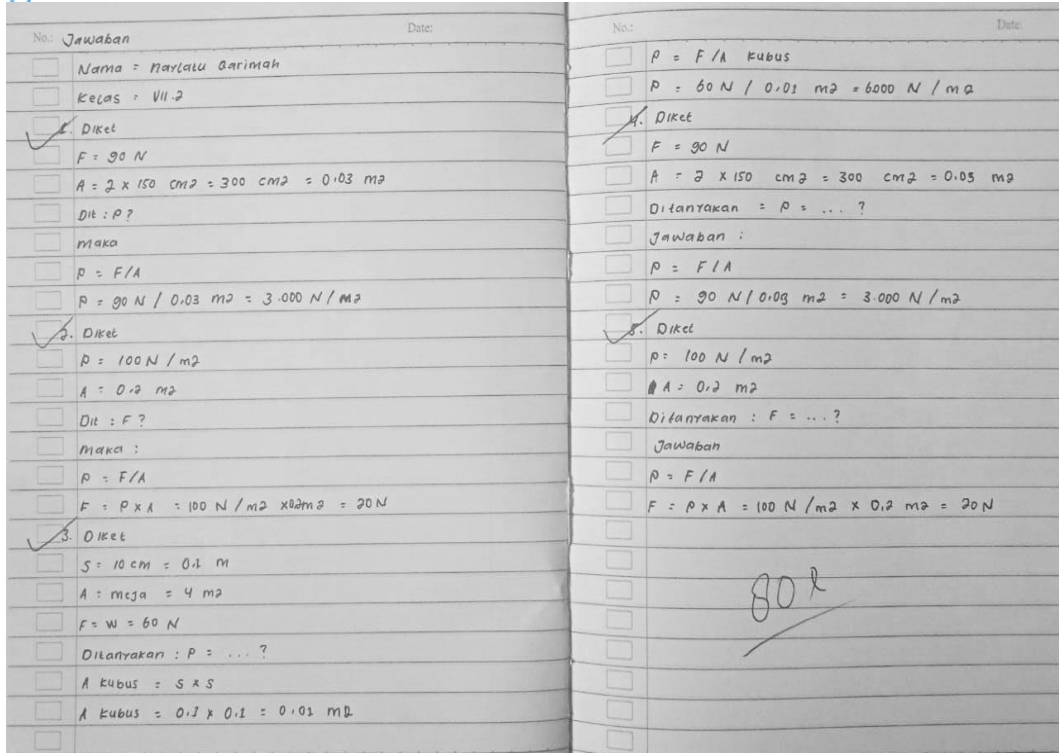 No.: Jawaban Date:
Nama = Narlatu Garimah
Kelas : VII.2
1. Diket
F = 90 N
A = 2 x 150 cm2 = 300 cm2 = 0.03 m2
Dit : P ?
maka
P = F/A
P = 90 N / 0.03 m2 = 3.000 N/m2
2. Diket
P = 100 N / m2
A = 0.2 m2
Dit : F ?
maka :
P = F/A
F = P x A = 100 N / m2 x0.2m2 = 20 N
3. Diket
S = 10 cm = 0.1 m
A = meja = 4 m2
F = W = 60 N
Ditanyakan : P = ... ?
A kubus = S x S
A kubus = 0.1 x 0.1 = 0.01 m2
No.: Date:
P = F /A kubus
P = 60 N / 0.01 m2 = 6000 N / m2
4. Diket
F = 90 N
A = 2 x 150 cm2 = 300 cm2 = 0.03 m2
Ditanyakan = P = ... ?
Jawaban :
P = F/A
P = 90 N/0.03 m2 = 3.000 N/m2
5. Diket
P = 100 N / m2
A = 0,2 m2
Ditanyakan : F = ... ?
Jawaban
P = F/A
F = P x A = 100 N /m2 x 0,2 m2 = 20 N
80